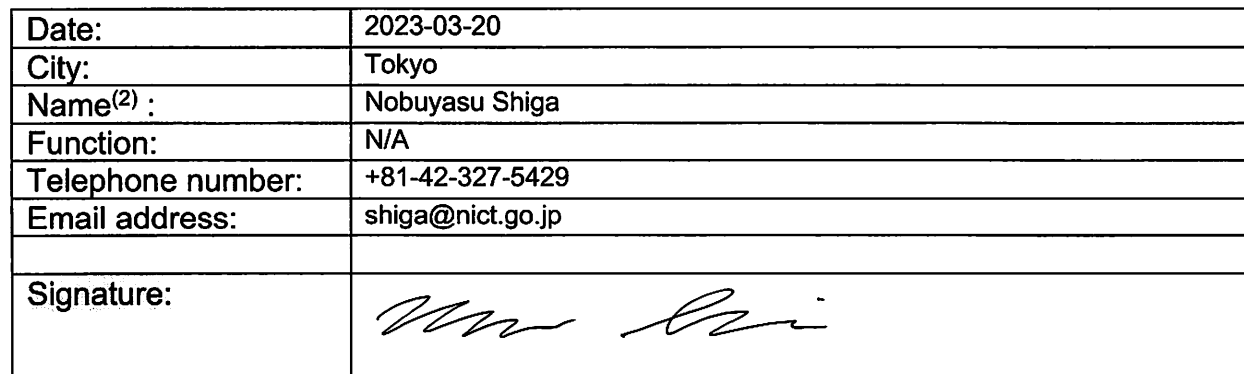 Date: 2023-03-20
City: Tokyo
Name(2) : Nobuyasu Shiga
Function: N/A
Telephone number: +81-42-327-5429
Email address: shiga@nict.go.jp
Signature: